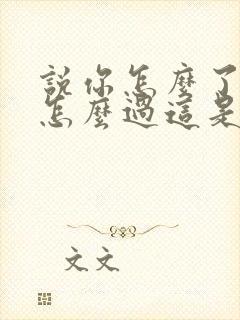 說你怎麼了
怎麼過這是
文文